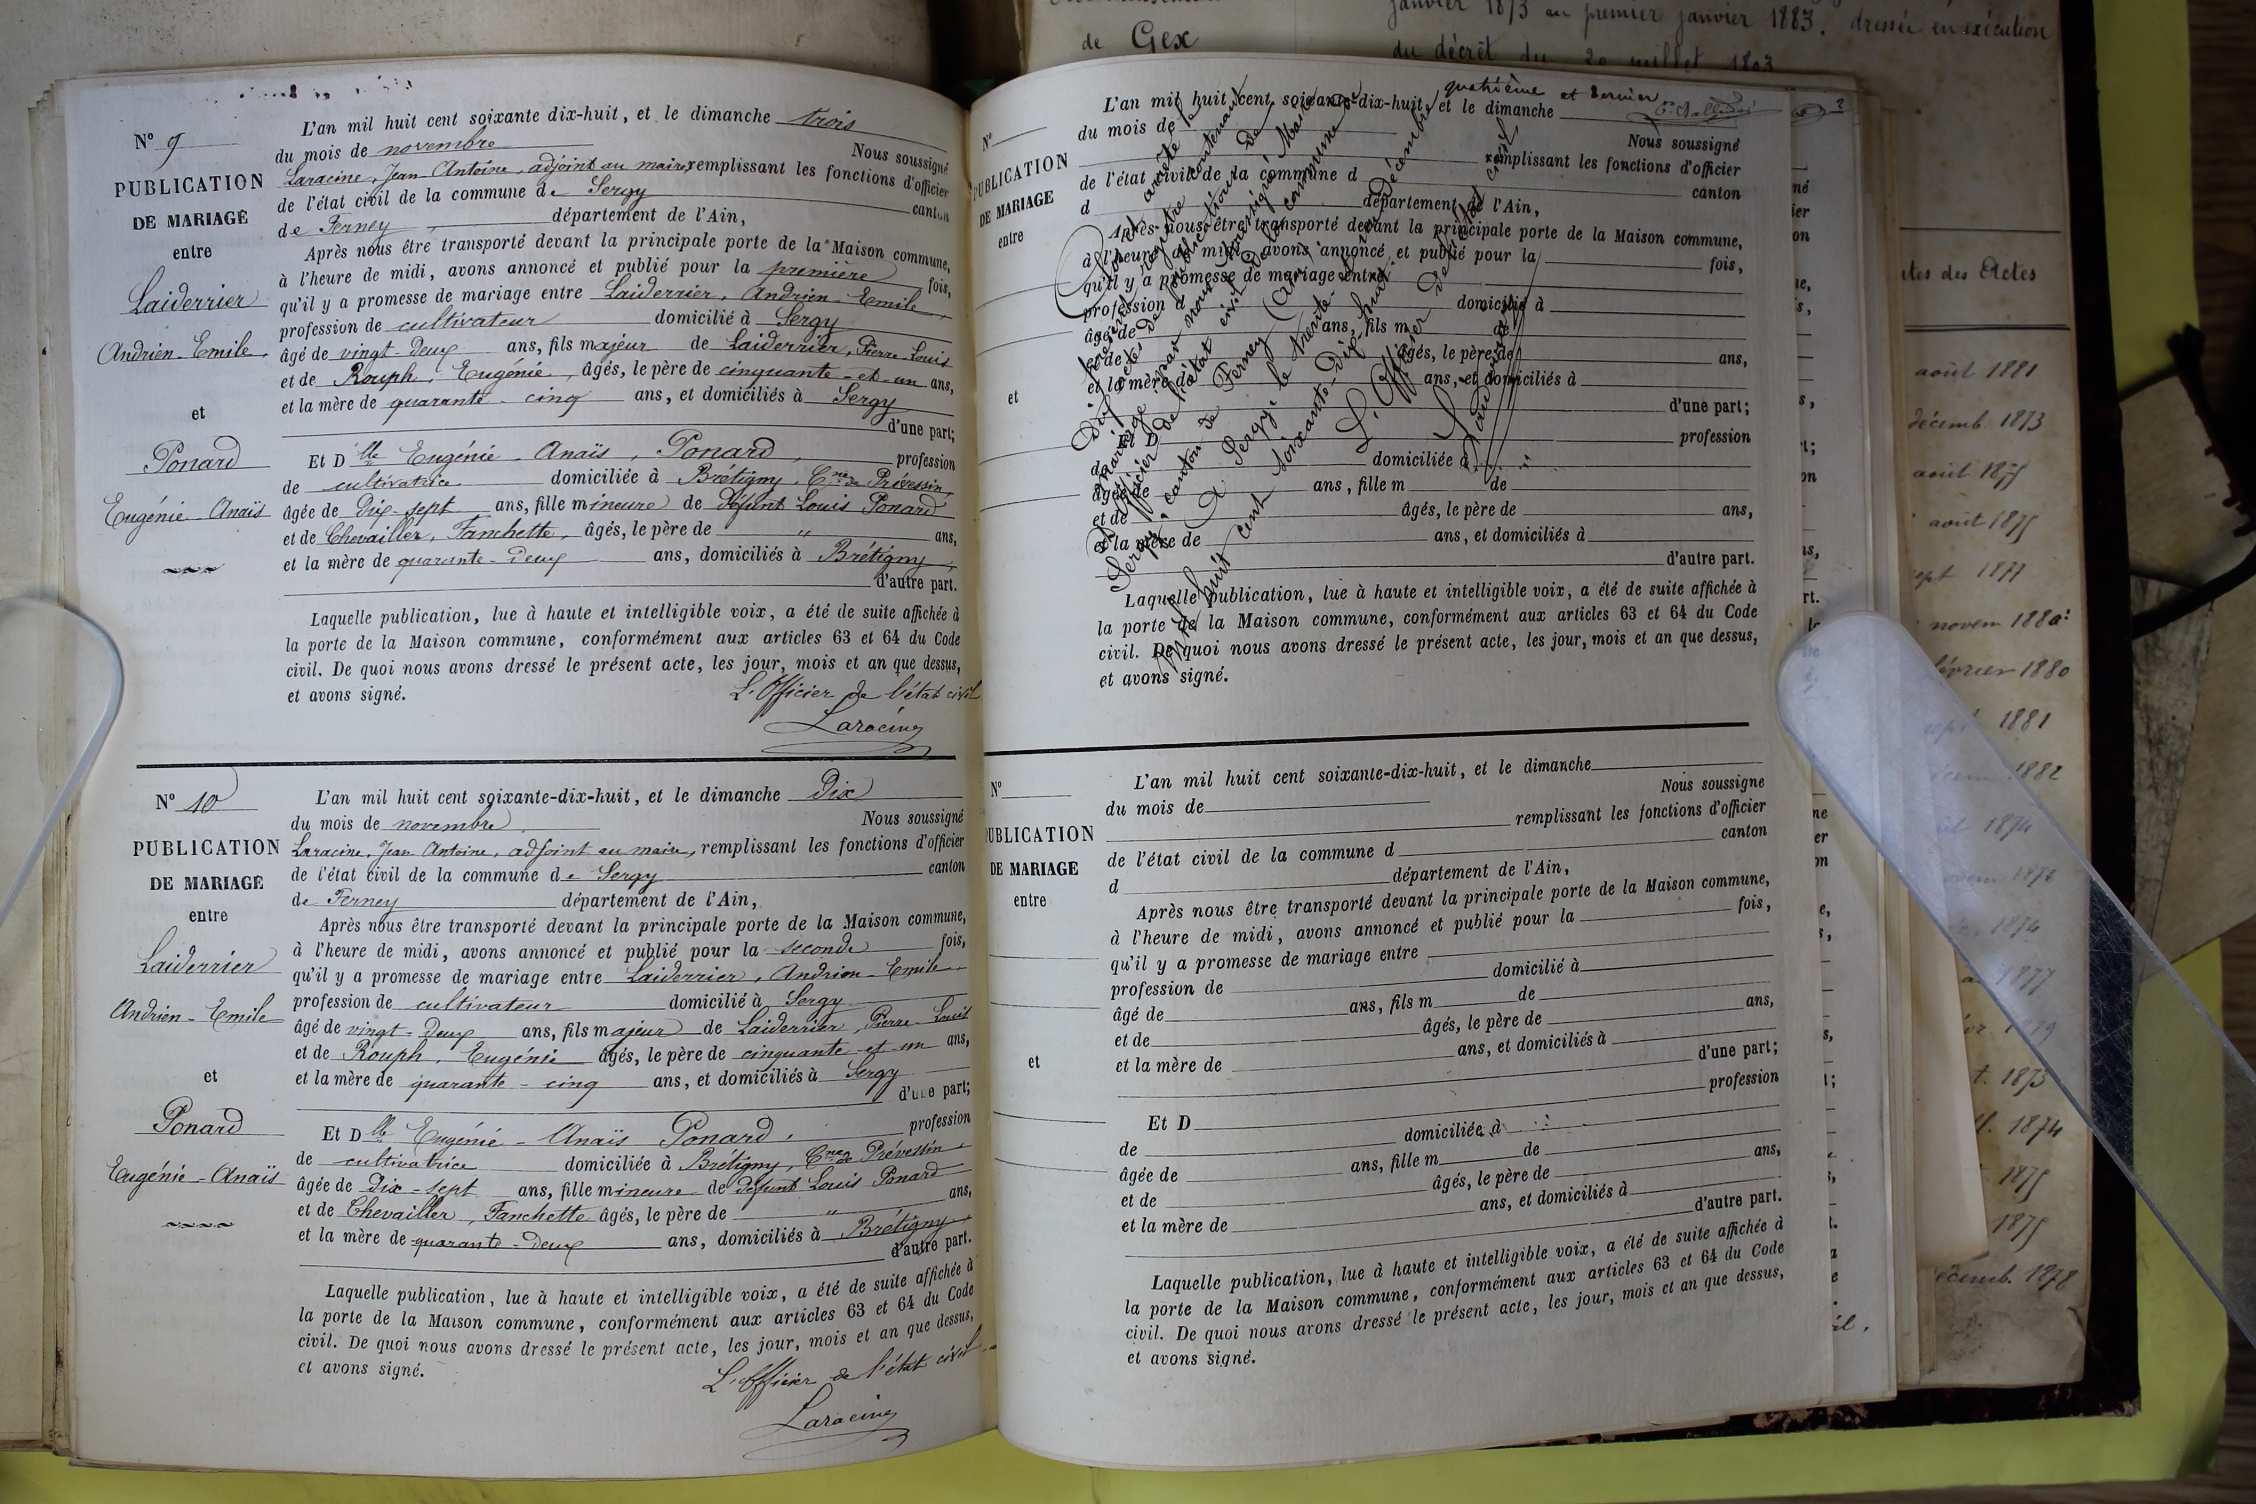 de Gex
janvier 1873 au premier janvier 1883. dressée en exécution
du décret du 20 juillet 1803
N° 9
PUBLICATION
DE MARIAGE
entre
Laiderrier
Andrien-Emile.
et
Ponard
Eugénie-Anaïs
L'an mil huit cent soixante dix-huit, et le dimanche trois
du mois de novembre Nous soussigné
Laracine, Jean Antoine, adjoint au maire, remplissant les fonctions d'officier
de l'état civil de la commune de Sergy canton
de Ferney, département de l'Ain,
Après nous être transporté devant la principale porte de la Maison commune,
à l'heure de midi, avons annoncé et publié pour la première fois,
qu'il y a promesse de mariage entre Laiderrier, Andrien-Emile,
profession de cultivateur domicilié à Sergy
âgé de vingt-deux ans, fils majeur de Laiderrier, Pierre-Louis
et de Rouph, Eugénie, âgés, le père de cinquante-et-un ans,
et la mère de quarante-cinq ans, et domiciliés à Sergy
d'une part;
Et Dlle Eugénie-Anaïs, Ponard, profession
de cultivatrice domiciliée à Brétigny, Cne de Prévessin,
âgée de dix-sept ans, fille mineure de défunt Louis Ponard
et de Chevailler, Fanchette, âgés, le père de " ans,
et la mère de quarante-deux ans, domiciliés à Brétigny,
d'autre part.
Laquelle publication, lue à haute et intelligible voix, a été de suite affichée à
la porte de la Maison commune, conformément aux articles 63 et 64 du Code
civil. De quoi nous avons dressé le présent acte, les jour, mois et an que dessus,
et avons signé.
L'Officier de l'état civil
Laracine
N° 10
PUBLICATION
DE MARIAGE
entre
Laiderrier
Andrien-Emile
et
Ponard
Eugénie-Anaïs
L'an mil huit cent soixante-dix-huit, et le dimanche Dix
du mois de novembre Nous soussigné
Laracine, Jean Antoine, adjoint au maire, remplissant les fonctions d'officier
de l'état civil de la commune de Sergy canton
de Ferney département de l'Ain,
Après nous être transporté devant la principale porte de la Maison commune,
à l'heure de midi, avons annoncé et publié pour la seconde fois,
qu'il y a promesse de mariage entre Laiderrier, Andrien-Emile
profession de cultivateur domicilié à Sergy
âgé de vingt-deux ans, fils majeur de Laiderrier, Pierre-Louis
et de Rouph, Eugénie âgés, le père de cinquante-et-un ans,
et la mère de quarante-cinq ans, et domiciliés à Sergy
d'une part;
Et Dlle Eugénie-Anaïs Ponard, profession
de cultivatrice domiciliée à Brétigny, Cne de Prévessin,
âgée de Dix-sept ans, fille mineure de défunt Louis Ponard
et de Chevailler, Fanchette âgés, le père de " ans,
et la mère de quarante-deux ans, domiciliés à Brétigny,
d'autre part.
Laquelle publication, lue à haute et intelligible voix, a été de suite affichée à
la porte de la Maison commune, conformément aux articles 63 et 64 du Code
civil. De quoi nous avons dressé le présent acte, les jour, mois et an que dessus,
et avons signé.
L'Officier de l'état civil
Laracine
quatrième et dernier
N°
PUBLICATION
DE MARIAGE
entre
et
L'an mil huit cent soixante-dix-huit, et le dimanche
du mois de Nous soussigné
remplissant les fonctions d'officier
de l'état civil de la commune d canton
d département de l'Ain,
Après nous être transporté devant la principale porte de la Maison commune,
à l'heure de midi, avons annoncé et publié pour la fois,
qu'il y a promesse de mariage entre
profession d domicilié à
âgé de ans, fils m de
et de âgés, le père de ans,
et la mère de ans, et domiciliés à
d'une part;
Et D profession
de domiciliée à
âgée de ans, fille m de
et de âgés, le père de ans,
et la mère de ans, et domiciliés à
d'autre part.
Laquelle publication, lue à haute et intelligible voix, a été de suite affichée à
la porte de la Maison commune, conformément aux articles 63 et 64 du Code
civil. De quoi nous avons dressé le présent acte, les jour, mois et an que dessus,
et avons signé.
Clos et arrêté le
présent registre contenant
Dix actes de publications de
mariage par nous soussigné Maire
et officier de l'état civil de la commune de
Sergy, canton de Ferney (Ain)
A Sergy, le trente-et-un décembre
mil huit cent soixante-dix-huit.
L'Officier de l'état civil
N°
PUBLICATION
DE MARIAGE
entre
et
L'an mil huit cent soixante-dix-huit, et le dimanche
du mois de Nous soussigné
remplissant les fonctions d'officier
de l'état civil de la commune d canton
d département de l'Ain,
Après nous être transporté devant la principale porte de la Maison commune,
à l'heure de midi, avons annoncé et publié pour la fois,
qu'il y a promesse de mariage entre
profession de domicilié à
âgé de ans, fils m de
et de âgés, le père de ans,
et la mère de ans, et domiciliés à
d'une part;
Et D profession
de domiciliée à
âgée de ans, fille m de
et de âgés, le père de ans,
et la mère de ans, et domiciliés à
d'autre part.
Laquelle publication, lue à haute et intelligible voix, a été de suite affichée à
la porte de la Maison commune, conformément aux articles 63 et 64 du Code
civil. De quoi nous avons dressé le présent acte, les jour, mois et an que dessus,
et avons signé.
des Actes
août 1881
décemb. 1873
août 1875
août 1875
sept 1877
novem 1880
février 1880
1881
1882
1874
1874
1877
1873
1874
1875
1875
décemb. 1878